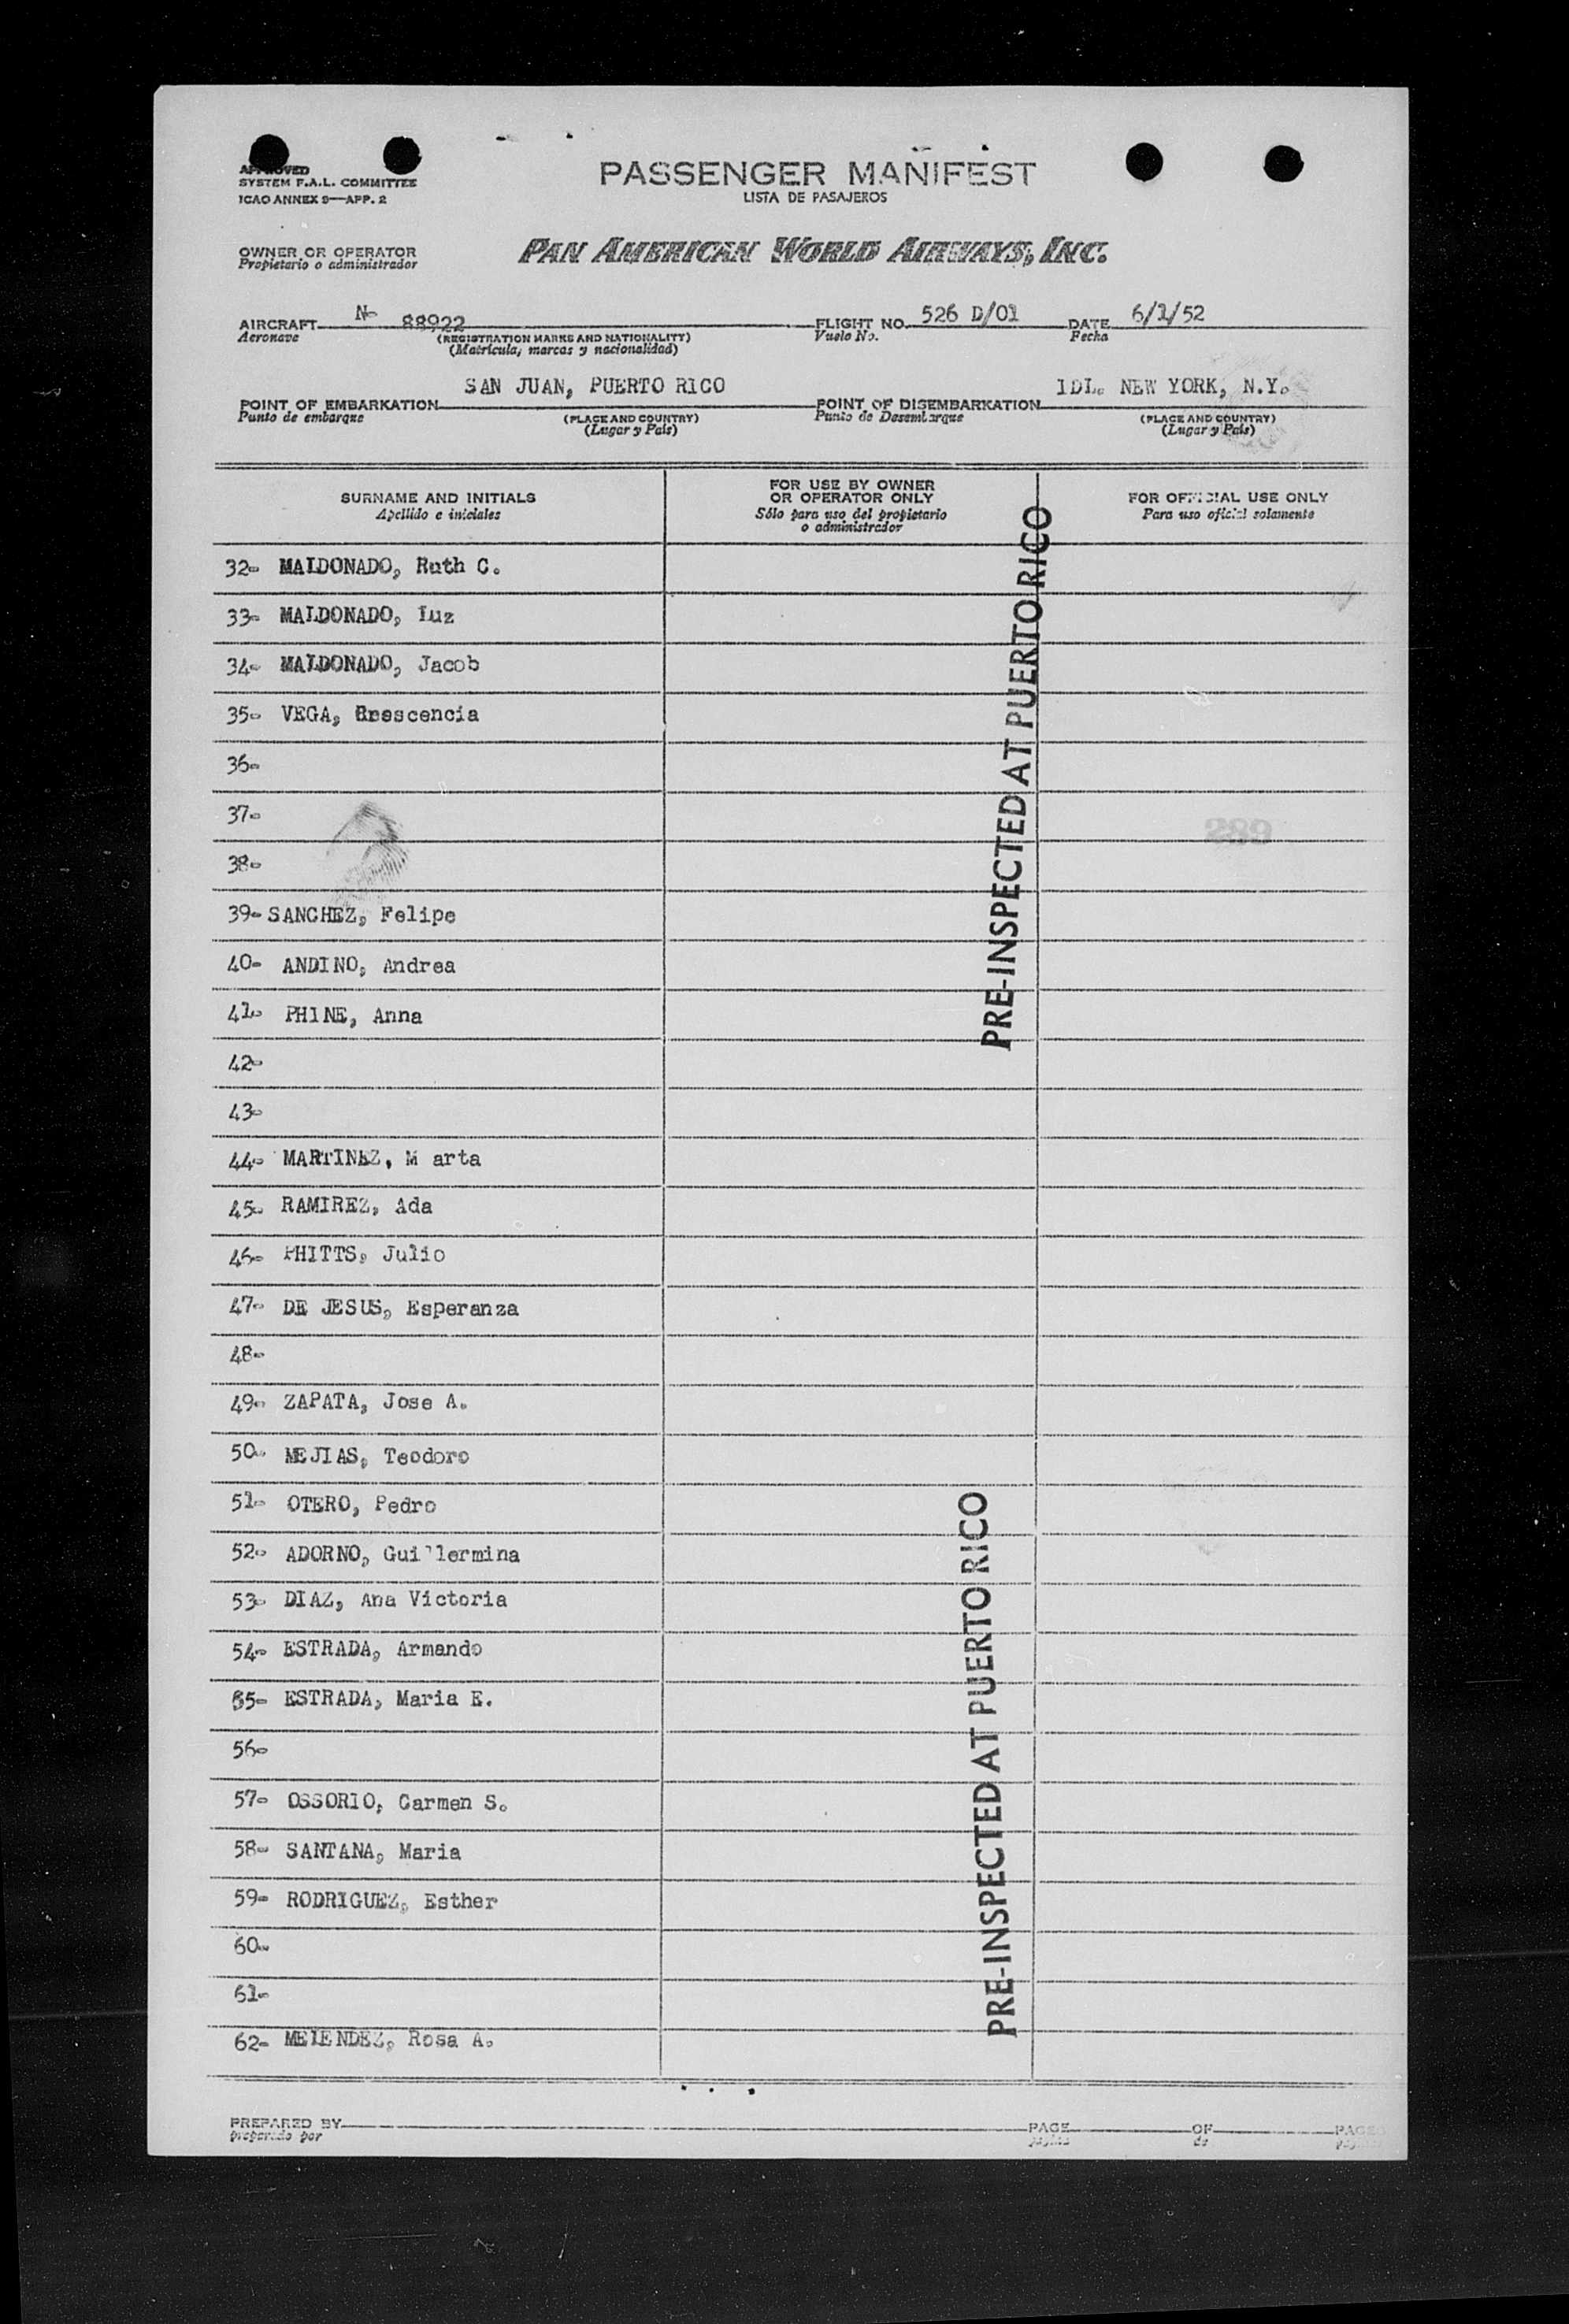 APPROVED
SYSTEM F.A.L. COMMITTEE
ICAO ANNEX 9—APP. 2
PASSENGER MANIFEST
LISTA DE PASAJEROS
OWNER OR OPERATOR
Propietario o administrador
PAN AMERICAN WORLD AIRWAYS, INC.
AIRCRAFT N- 88922
Aeronave
(REGISTRATION MARKS AND NATIONALITY)
(Matrícula, marcas y nacionalidad)
FLIGHT NO. 526 D/01
Vuelo No.
DATE 6/1/52
Fecha
POINT OF EMBARKATION SAN JUAN, PUERTO RICO
Punto de embarque
(PLACE AND COUNTRY)
(Lugar y País)
POINT OF DISEMBARKATION IDL. NEW YORK, N.Y.
Punto de Desembarque
(PLACE AND COUNTRY)
(Lugar y País)
SURNAME AND INITIALS
Apellido e iniciales
FOR USE BY OWNER
OR OPERATOR ONLY
Sólo para uso del propietario
o administrador
FOR OFFICIAL USE ONLY
Para uso oficial solamente
32- MALDONADO, Ruth C.
33- MALDONADO, Luz
34- MALDONADO, Jacob
35- VEGA, Crescencia
36-
37-
38-
39- SANCHEZ, Felipe
40- ANDINO, Andrea
41- PHINE, Anna
42-
43-
44- MARTINEZ, M arta
45- RAMIREZ, Ada
46- PHITTS, Julio
47- DE JESUS, Esperanza
48-
49- ZAPATA, Jose A.
50- MEJIAS, Teodoro
51- OTERO, Pedro
52- ADORNO, Guillermina
53- DIAZ, Ana Victoria
54- ESTRADA, Armando
55- ESTRADA, Maria E.
56-
57- OSSORIO, Carmen S.
58- SANTANA, Maria
59- RODRIGUEZ, Esther
60-
61-
62- MELENDEZ, Rosa A.
PRE-INSPECTED AT PUERTO RICO
PRE-INSPECTED AT PUERTO RICO
PREPARED BY
preparado por
PAGE
página
OF
de
PAGES